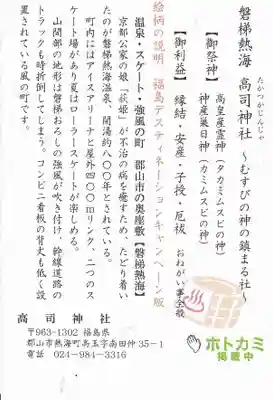 磐梯熱海 高司神社 ～むすびの神の鎮まる社～
たかつかじんじゃ
【御祭神】 高皇産霊神(タカミムスビの神)
神産巣日神(カミムスビの神)
【御利益】 縁結・安産・子授・厄祓 おねがい事全般
絵柄の説明 福島デスティネーションキャンペーン版
温泉・スケート・強風の町 郡山市の奥座敷【磐梯熱海】
京都公家の娘「萩姫」が不治の病を癒すため、たどり着い
たのが磐梯熱海温泉、開湯約八〇〇年とされている。
町内にはアイスアリーナと屋外四〇〇mリンク、二つのス
ケート場があり夏はローラースケートが楽しめる。
山間部の地形は磐梯おろしの強風が吹き付け、幹線道路の
トラックも時折倒してしまう。コンビニ看板の背丈も低く設
置されている風の町です。
高司神社
〒963-1302 福島県
郡山市熱海町高玉字南田仲35－1
電話 024-984-3316
ホトカミ
掲載中